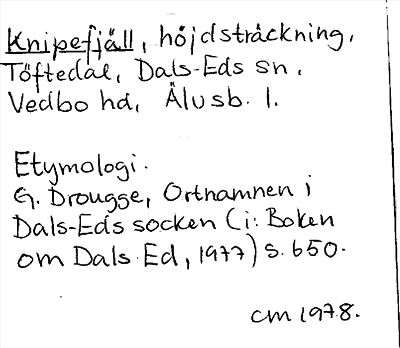 Knipefjäll, höjdsträckning,
Töftedal, Dals-Eds sn,
Vedbo hd, Älvsb. l.
Etymologi.
G. Drougge, Ortnamnen i
Dals-Eds socken (i: Boken
om Dals Ed, 1977) s. 650.
CM 1978.